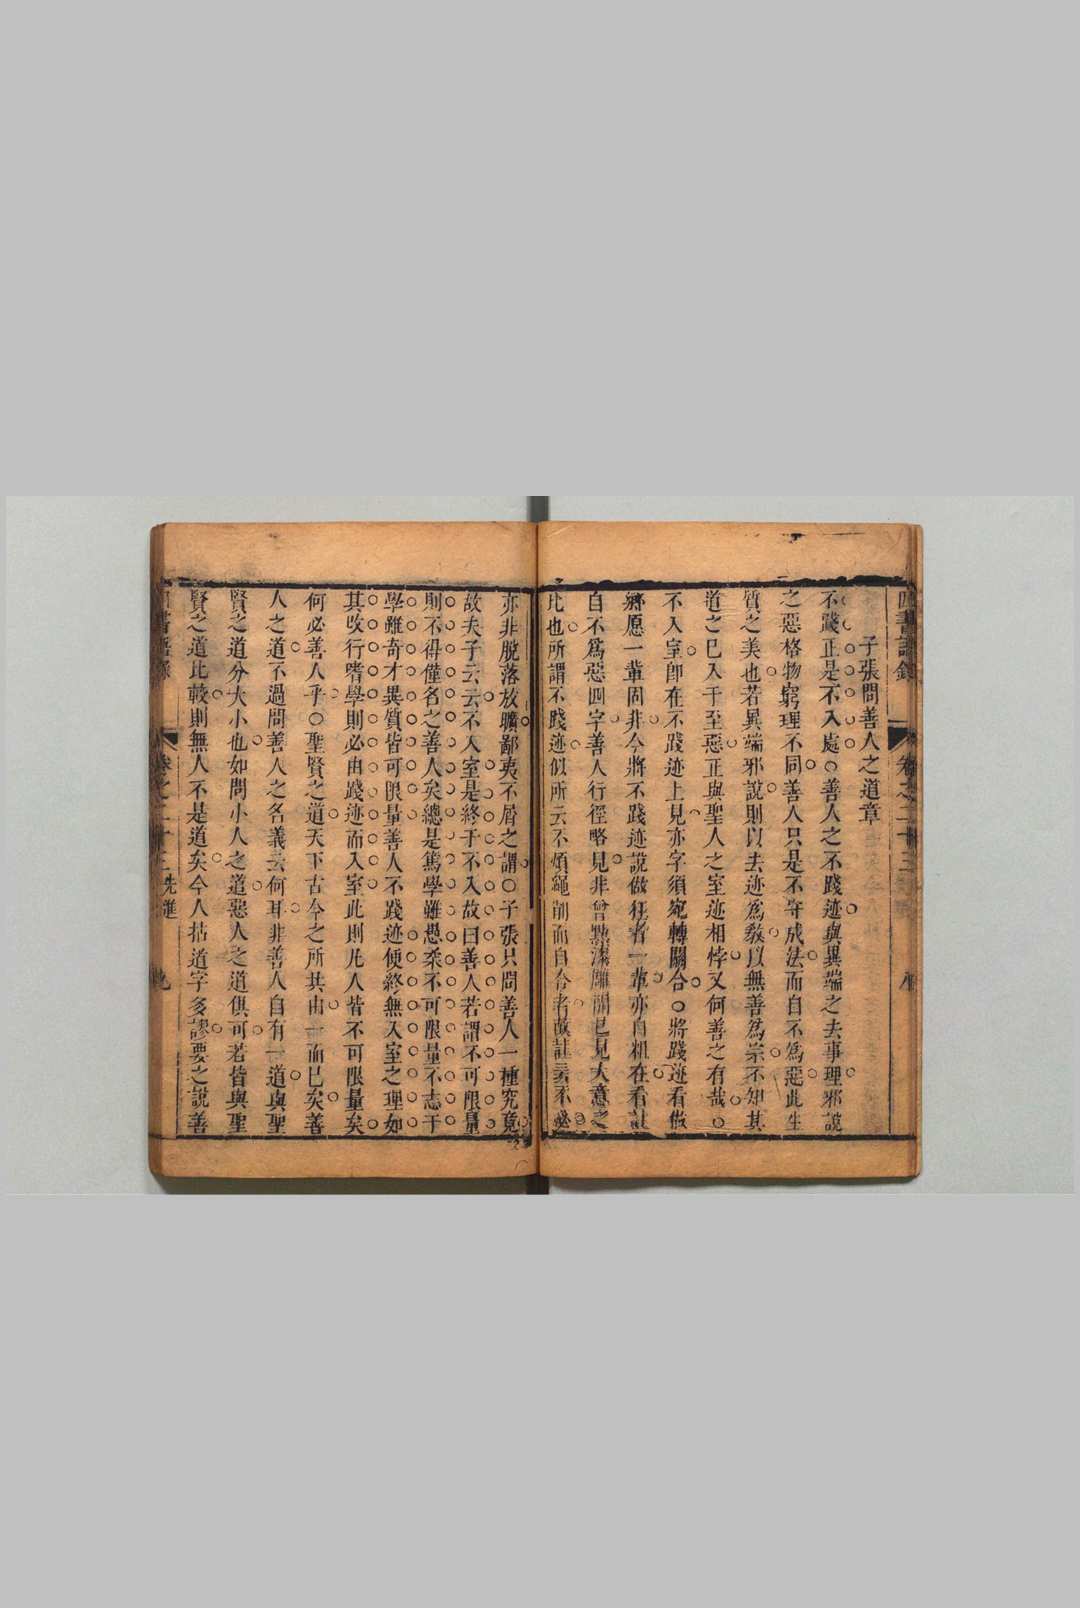 四書語錄
卷之二十三
子張問善人之道章
不踐正是不入處○善人之不踐迹與異端之去事理邪說
之惡格物窮理不同善人只是不守成法而自不爲惡此生
質之美也若異端邪說則以去迹爲教以無善爲宗不知其
道之已入于至惡正與聖人之室迹相悖又何善之有哉
不入室卽在不踐迹上見亦字須宛轉關合○將踐迹看做
鄉愿一輩固非今將不踐迹說做狂者一輩亦自粗在看註
自不爲惡四字善人行徑略見非曾點漆雕開已見大意之
比也所謂不踐迹似所云不煩繩削而自合者故註云不必
亦非脫落放曠鄙夷不屑之謂○子張只問善人一種究竟
故夫子云云不入室是終于不入故曰善人若謂不可限量
則不得僅名之善人矣總是篤學雖愚柔不可限量不志于
學雖奇才異質皆可限量善人不踐迹便終無入室之理如
其改行嗜學則必由踐迹而入室此則凡人皆不可限量矣
何必善人乎○聖賢之道天下古今之所共由一而已矣善
人之道不過問善人之名義云何耳非善人自有一道與聖
賢之道分大小也如問小人之道惡人之道俱可若皆與聖
賢之道比較則無人不是道矣今人拈道字多謬要之說善
卷之二十三 先進